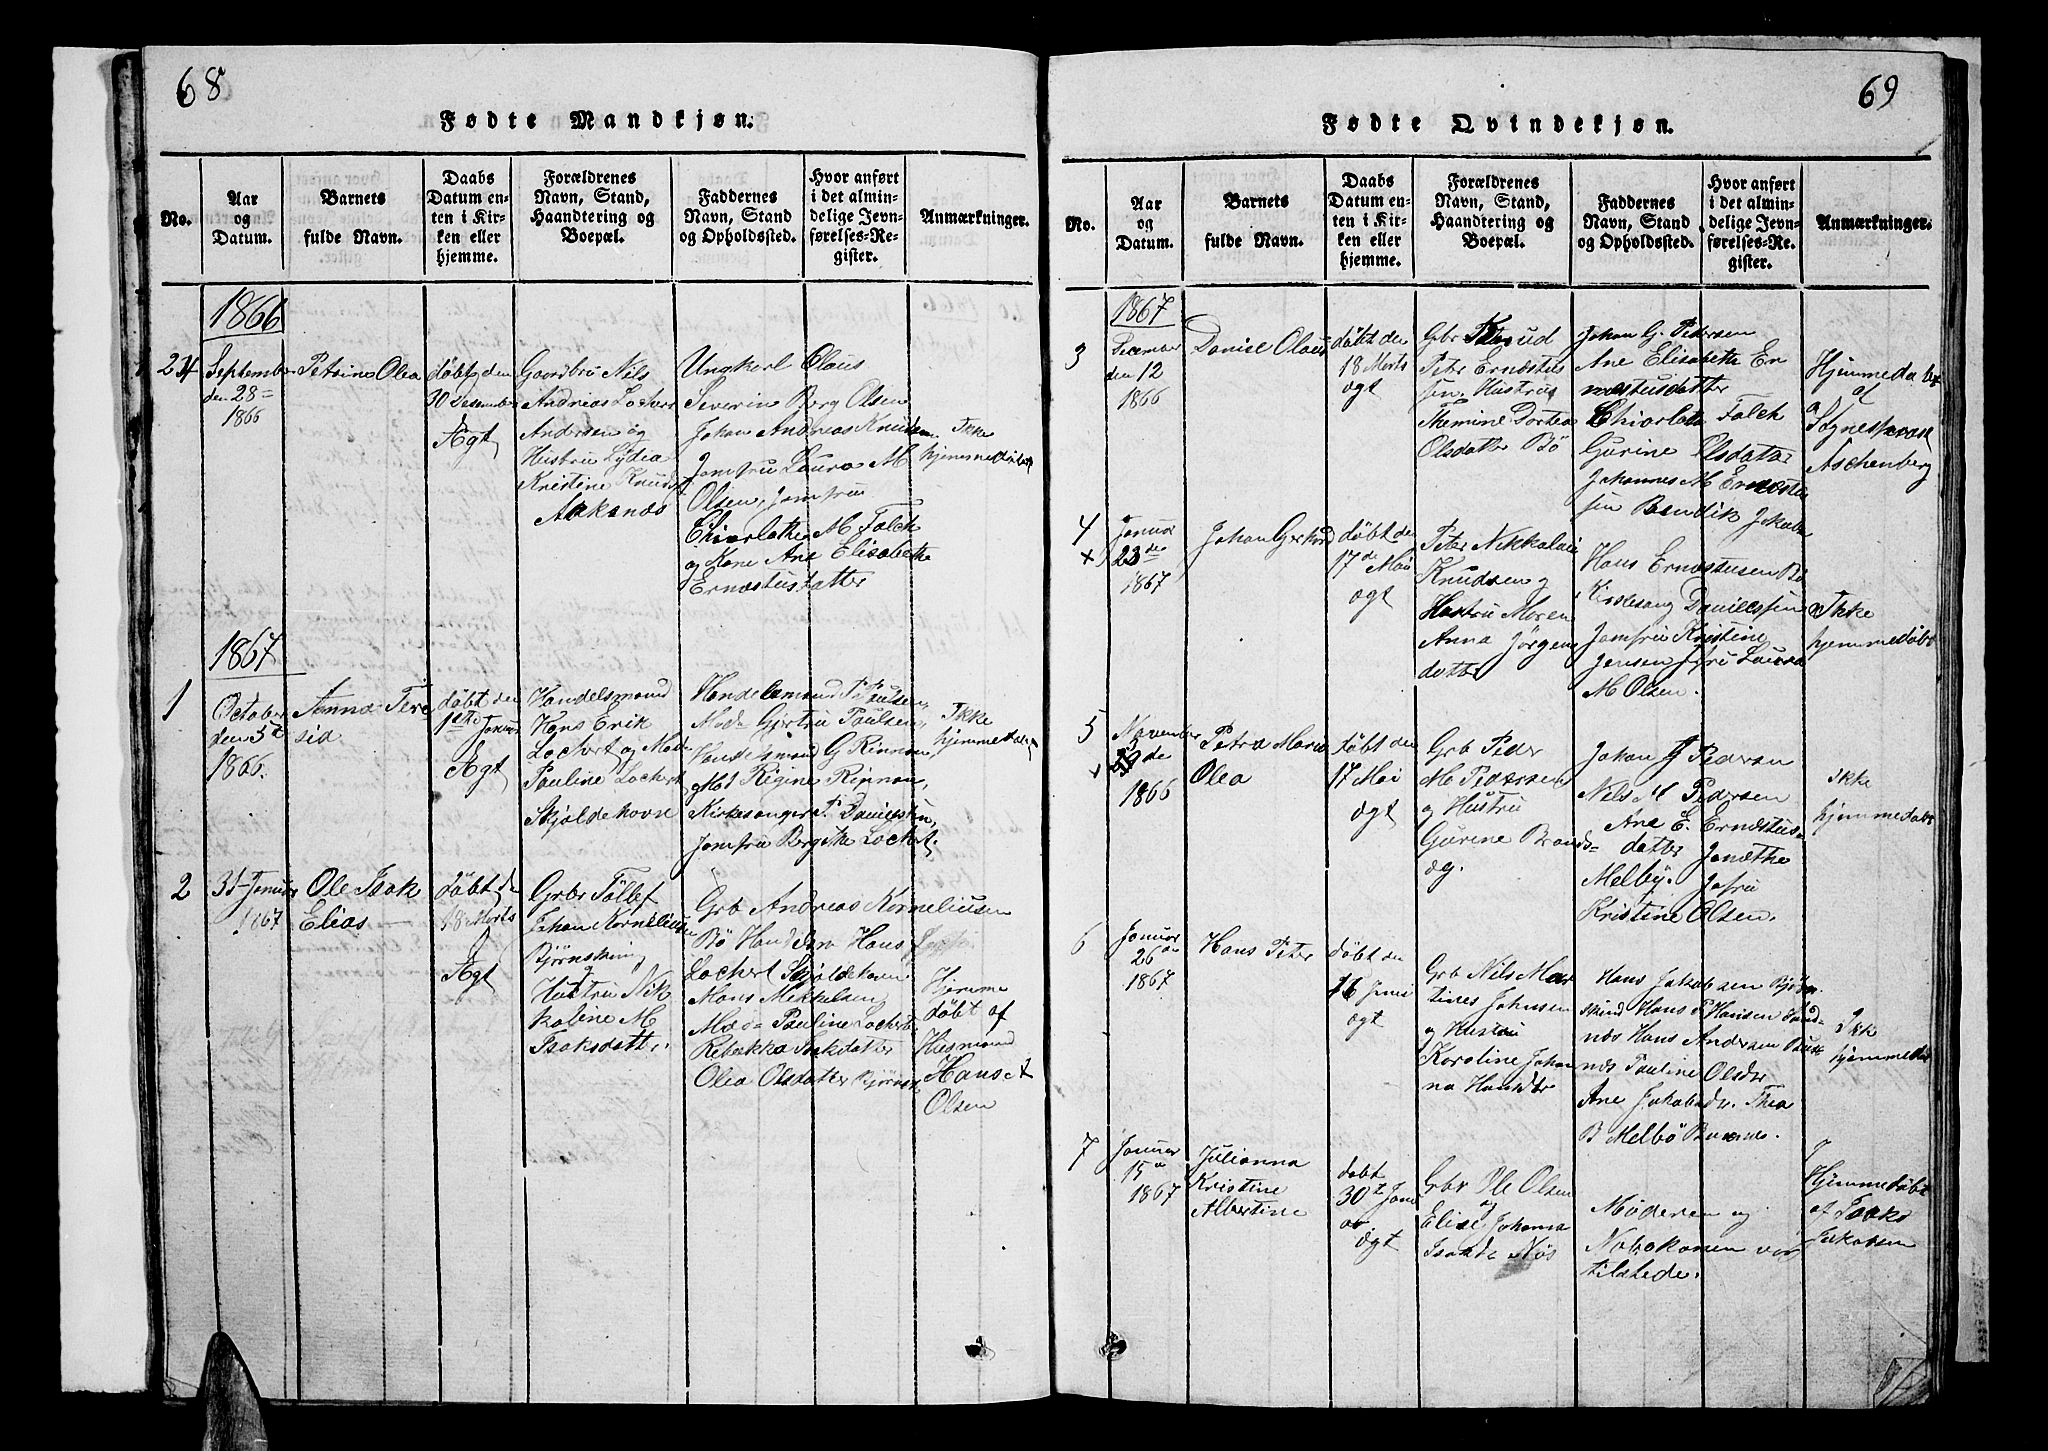 68
Fødte Mandkjøn.
No.
Aar
og
Datum.
Barnets
fulde Navn.
Daabs
Datum en-
ten i Kir-
ken eller
hjemme.
Forældrenes
Navn, Stand,
Haandtering og
Boepæl.
Faddernes
Navn, Stand
og Opholdssted.
Hvor anført
i det almin-
delige Jevn-
førelses-Re-
gister.
Anmærkninger.
1866
24
September
den 28
1866
Petrine Olea
døbt den
30 Desember
Ægt
Gaardbr. Nils
Andreas Lochert
Andersen og
Hustru Lydea
Kristine Knuds
Aaknæs
Ungkerl Claus
Severin Berg Olsen
Johan Andreas Knudsen
Jomfru Laura M
Olsen, Jomfru
Chiarlothe M Falch
og Kone Ane Elisabethe
Ernæstusdatter
Ikke
hjemmedøbt
1867
1
October
den 3
1866.
Anna Tere
sia
døbt den
1ste Januar
Ægt
Handelsmand
Hans Erik
Lochert og Mad
Pauline Lochert
Skjoldehavn
Handelsmand P Paulsen,
Mad Gjertru Paulsen,
Handelsmand G Rinnan,
Mad Rigine Rinnan,
Kirkesanger P. Danielsen,
Jomfru Bergithe Lochert.
Ikke
hjemmedøbt
2
31 Januar
1867
Ole Isak
Elias
døbt den
18 Marts
Ægt
Grbr Tøllef
Johan Kornelius
Bjørnskin
og
Hustru Nik
koline M
Isaksdatter.
Grb Andreas Korneliusen
Bø Hans
Lochert Skjoldehavn
Mons Mekkelsen
Mad Pauline Lochert
Rebekka Isakdatter
Olea Olsdatter Bjørnsk
Hjemme
døbt af
Husmand
Hans
Olsen
69
Fødte Qvindekjøn.
No.
Aar
og
Datum.
Barnets
fulde Navn.
Daabs
Datum en-
ten i Kir-
ken eller
hjemme.
Forældrenes
Navn, Stand,
Haandtering og
Boepæl.
Faddernes
Navn, Stand
og Opholdssted.
Hvor anført
i det almin-
delige Jevn-
førelses-Re-
gister.
Anmærkninger.
1867
3
December
den 12
1866
Danise Olaus
døbt den
18 Marts
ægt
Grbr
Peter Ernæstus
sen. Hustru
Themine Dortea
Olsdatter Bø
Johan G. Pedersen
Ane Elisabethe Er
næstusdatter
Chiarlote Falch
Gurine Olsdatter
Johannes M Ernæstus
sen Bendik Jakobs
Hjemmedøbt
af
Sognepræst
Aschenberg
4
Januar
23de
1867
Johan Gerhard
døbt den
17de Mai
ægt
Peter Nikkolai
Knudsen og
Hustru Maren
Anna Jørgens
datter
Hans Ernæstusen Bø
Kirkesang Danielssen
Jomfru Kristine
Jensen Jfru Laura
M Olsen.
Ikke
hjemmedøbt
5
November
de
1866
Petra Marie
Olea
døbt den
17 Mai
ægt
Grb Peder
M Pedersen
og Hustru
Gurine Brands-
øg.
Johan G Pedersen
Nels M Pedersen
Ane E. Ernæstus-
datter Janethe
Melby. Jofru
Kristine Olsen.
ikke
hjemmedøbt
6
Januar
26
1867
Hans Peter
døbt den
16 Juni
ægt
Grb Nils Mar
tines Johnsen
og Hustru
Karoline Johan
na Hansdtr
Hans Jakobsen Bjørn
skind Hans P Hansen
næs Hans Andersen
næs Pauline Olsdtr
Ane Jakobsdr. Thea
B Melbø Buknes.
Ikke
hjemmedøbt
7
Januar
15
1867
Julianna
Kristine
Albertine
døbt
30t Janu
ar
ægt
Grbr Ole Olsen
og
Elise Johanna
Isaksdr Nøs
Moderen og
Nabokonen var
tilstede.
Hjemmedøbt
af Isak
Jakobsen